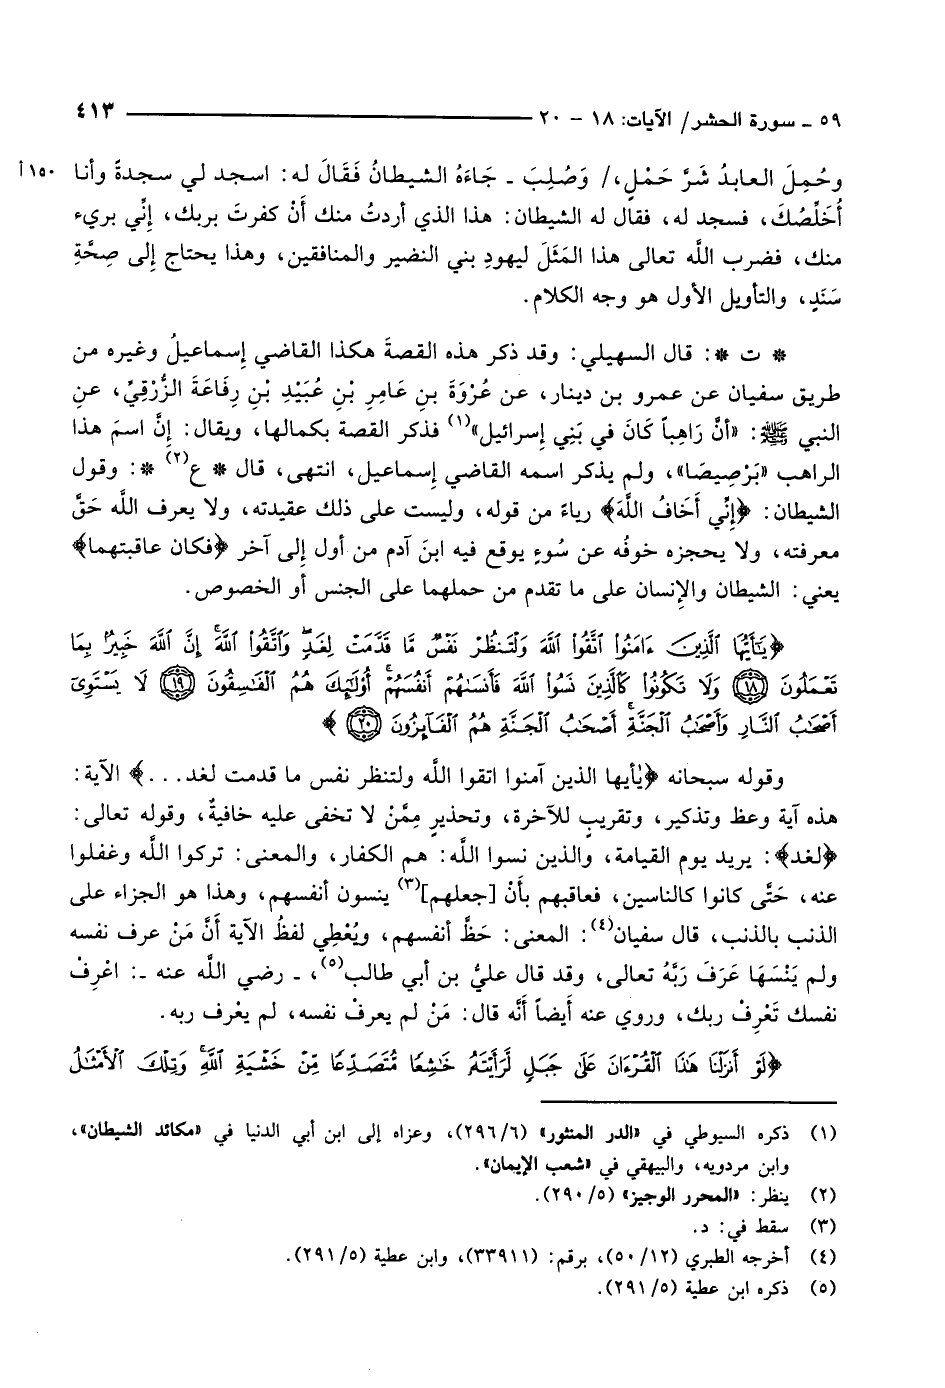 ٥٩ ـ سورة الحشر/ الآيات: ١٨ - ٢٠ ٤١٣
وحُمِلَ العابدُ شَرَّ حَمْلٍ،/ وَصُلِبَ ـ جَاءَهُ الشيطانُ فَقَالَ له: اسجد لي سجدةً وأنا ١٥٠أ
أُخَلِّصُكَ، فسجد له، فقال له الشيطان: هذا الذي أردتُ منك أَنْ كفرتَ بربك، إنِّي بريء
منك، فضرب اللَّه تعالى هذا المَثَلَ ليهودِ بني النضير والمنافقين، وهذا يحتاج إلى صِحَّةِ
سَنَدٍ، والتأويل الأول هو وجه الكلام.
* ت *: قال السهيلي: وقد ذكر هذه القصةَ هكذا القاضي إسماعيلُ وغيره من
طريق سفيان عن عمرو بن دينار، عن عُرْوَةَ بنِ عَامِرِ بْنِ عُبَيْدِ بْنِ رِفَاعَةَ الزُّرْقِيِّ، عنِ
النبي ﷺ: «أنَّ رَاهِباً كَانَ في بَنِي إسرائيل»(١) فذكر القصة بكمالها، ويقال: إنَّ اسمَ هذا
الراهب «بَرْصِيصَا»، ولم يذكر اسمه القاضي إسماعيل، انتهى، قال * ع(٢) *: وقول
الشيطان: ﴿إنِّي أَخَافُ اللَّهَ﴾ رياءً من قوله، وليست على ذلك عقيدته، ولا يعرف الله حَقَّ
معرفته، ولا يحجزه خوفُه عن سُوءٍ يوقع فيه ابنَ آدم من أول إلى آخر ﴿فكان عاقبتهما﴾
يعني: الشيطان والإنسان على ما تقدم من حملهما على الجنس أو الخصوص.
﴿يَٰٓأَيُّهَا ٱلَّذِينَ ءَامَنُوا۟ ٱتَّقُوا۟ ٱللَّهَ وَلْتَنظُرْ نَفْسٌ مَّا قَدَّمَتْ لِغَدٍ ۖ وَٱتَّقُوا۟ ٱللَّهَ ۚ إِنَّ ٱللَّهَ خَبِيرٌۢ بِمَا
تَعْمَلُونَ ١٨ وَلَا تَكُونُوا۟ كَٱلَّذِينَ نَسُوا۟ ٱللَّهَ فَأَنسَىٰهُمْ أَنفُسَهُمْ ۚ أُو۟لَٰٓئِكَ هُمُ ٱلْفَٰسِقُونَ ١٩ لَا يَسْتَوِىٓ
أَصْحَٰبُ ٱلنَّارِ وَأَصْحَٰبُ ٱلْجَنَّةِ ۚ أَصْحَٰبُ ٱلْجَنَّةِ هُمُ ٱلْفَآئِزُونَ ٢٠ ﴾
وقوله سبحانه ﴿يٰأيها الذين آمنوا اتقوا اللَّه ولتنظر نفس ما قدمت لغد...﴾ الآية:
هذه آية وعظ وتذكير، وتقريبٍ للآخرة، وتحذيرٍ مِمَّنْ لا تخفى عليه خافيةٌ، وقوله تعالى:
﴿لغد﴾: يريد يوم القيامة، والذين نسوا اللَّه: هم الكفار، والمعنى: تركوا اللَّه وغفلوا
عنه، حَتَّى كانوا كالناسين، فعاقبهم بأَنْ [جعلهم](٣) ينسون أنفسهم، وهذا هو الجزاء على
الذنب بالذنب، قال سفيان(٤): المعنى: حَظَّ أنفسهم، ويُعْطِي لفظُ الآية أَنَّ مَنْ عرف نفسه
ولم يَنْسَهَا عَرَفَ رَبَّهُ تعالى، وقد قال عليُّ بن أبي طالب(٥)، ـ رضي اللَّه عنه ـ: اعْرِفْ
نفسك تَعْرِفْ ربك، وروي عنه أَيضاً أنَّه قال: مَنْ لم يعرفْ نفسه، لم يعْرف ربه.
﴿لَوْ أَنزَلْنَا هَٰذَا ٱلْقُرْءَانَ عَلَىٰ جَبَلٍ لَّرَأَيْتَهُۥ خَٰشِعًا مُّتَصَدِّعًا مِّنْ خَشْيَةِ ٱللَّهِ ۚ وَتِلْكَ ٱلْأَمْثَٰلُ
(١) ذكره السيوطي في «الدر المنثور» (٢٩٦/٦)، وعزاه إلى ابن أبي الدنيا في «مكائد الشيطان»،
وابن مردويه، والبيهقي في «شعب الإيمان».
(٢) ينظر: «المحرر الوجيز» (٢٩٠/٥).
(٣) سقط في: د.
(٤) أخرجه الطبري (٥٠/١٢)، برقم: (٣٣٩١١)، وابن عطية (٢٩١/٥).
(٥) ذكره ابن عطية (٢٩١/٥).